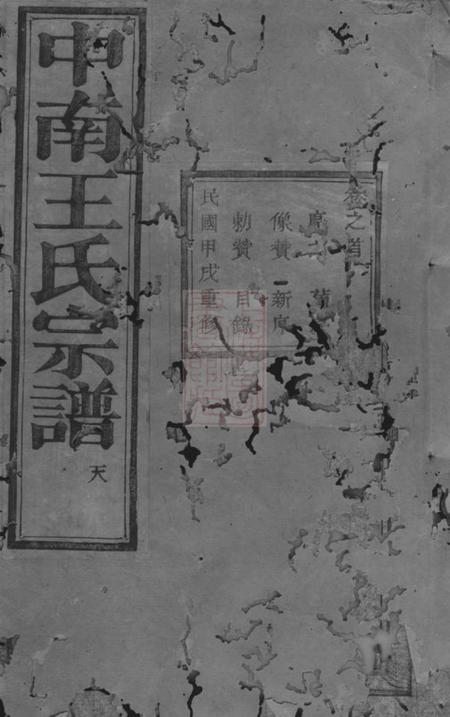 卷之首
像贊 新序
勅贊 目錄
民國甲戌重修
中南王氏宗譜
天